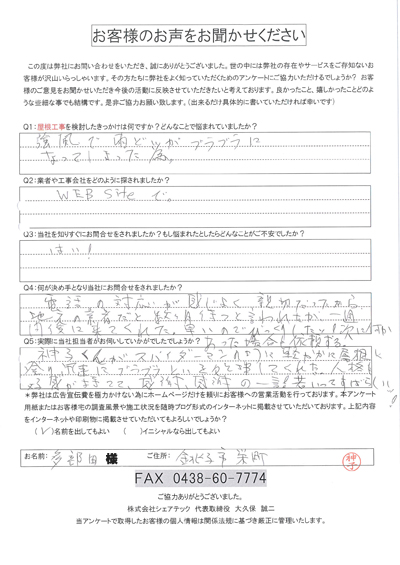 お客様のお声をお聞かせください
この度は弊社にお問い合わせをいただき、誠にありがとうございました。世の中には弊社の存在やサービスをご存知ないお
客様が沢山いらっしゃいます。その方たちに弊社をよく知っていただくためのアンケートにご協力いただけるでしょうか？ お客
様のご意見をお聞かせいただき今後の活動に反映させていただきたいと考えております。良かったこと、嬉しかったことどのよ
うな些細な事でも結構です。是非ご協力お願い致します。（出来るだけ具体的に書いていただければ幸いです）
Q1：屋根工事を検討したきっかけは何ですか？どんなことで悩まれていましたか？
強風で雨どいがブラブラに
なってしまった為。
Q2：業者や工事会社をどのように探されましたか？
WEB Siteで。
Q3：当社を知りすぐにお問合せをされましたか？もし悩まれたとしたらどんなことがご不安でしたか？
はい！
Q4：何が決め手となり当社にお問合せをされましたか？
電話の対応が感じよく 親切だったから
地元の業者だと 待つと言われたが一週
間後に来てくれた。早いのでびっくりした！
Q5：実際に当社担当者がお伺いしていかがでしたでしょうか？
神子くんがスパイダーマンのように 屋根に
登り 
＊弊社は広告宣伝費を極力かけない為にホームページだけを頼りにお客様への営業活動を行っております。本アンケート
用紙またはお客様宅の調査風景や施工状況を随時ブログ形式のインターネットに掲載させていただいております。上記内容
をインターネットや印刷物に掲載させていただいてもよろしいでしょうか？
（✓）名前を出してもよい （ ）イニシャルなら出してもよい
お名前： 様 ご住所： 市栄町
神子
FAX 0438-60-7774
ご協力ありがとうございました。
株式会社シェアテック 代表取締役 大久保 誠二
当アンケートで取得したお客様の個人情報は関係法規に基づき厳正に管理いたします。